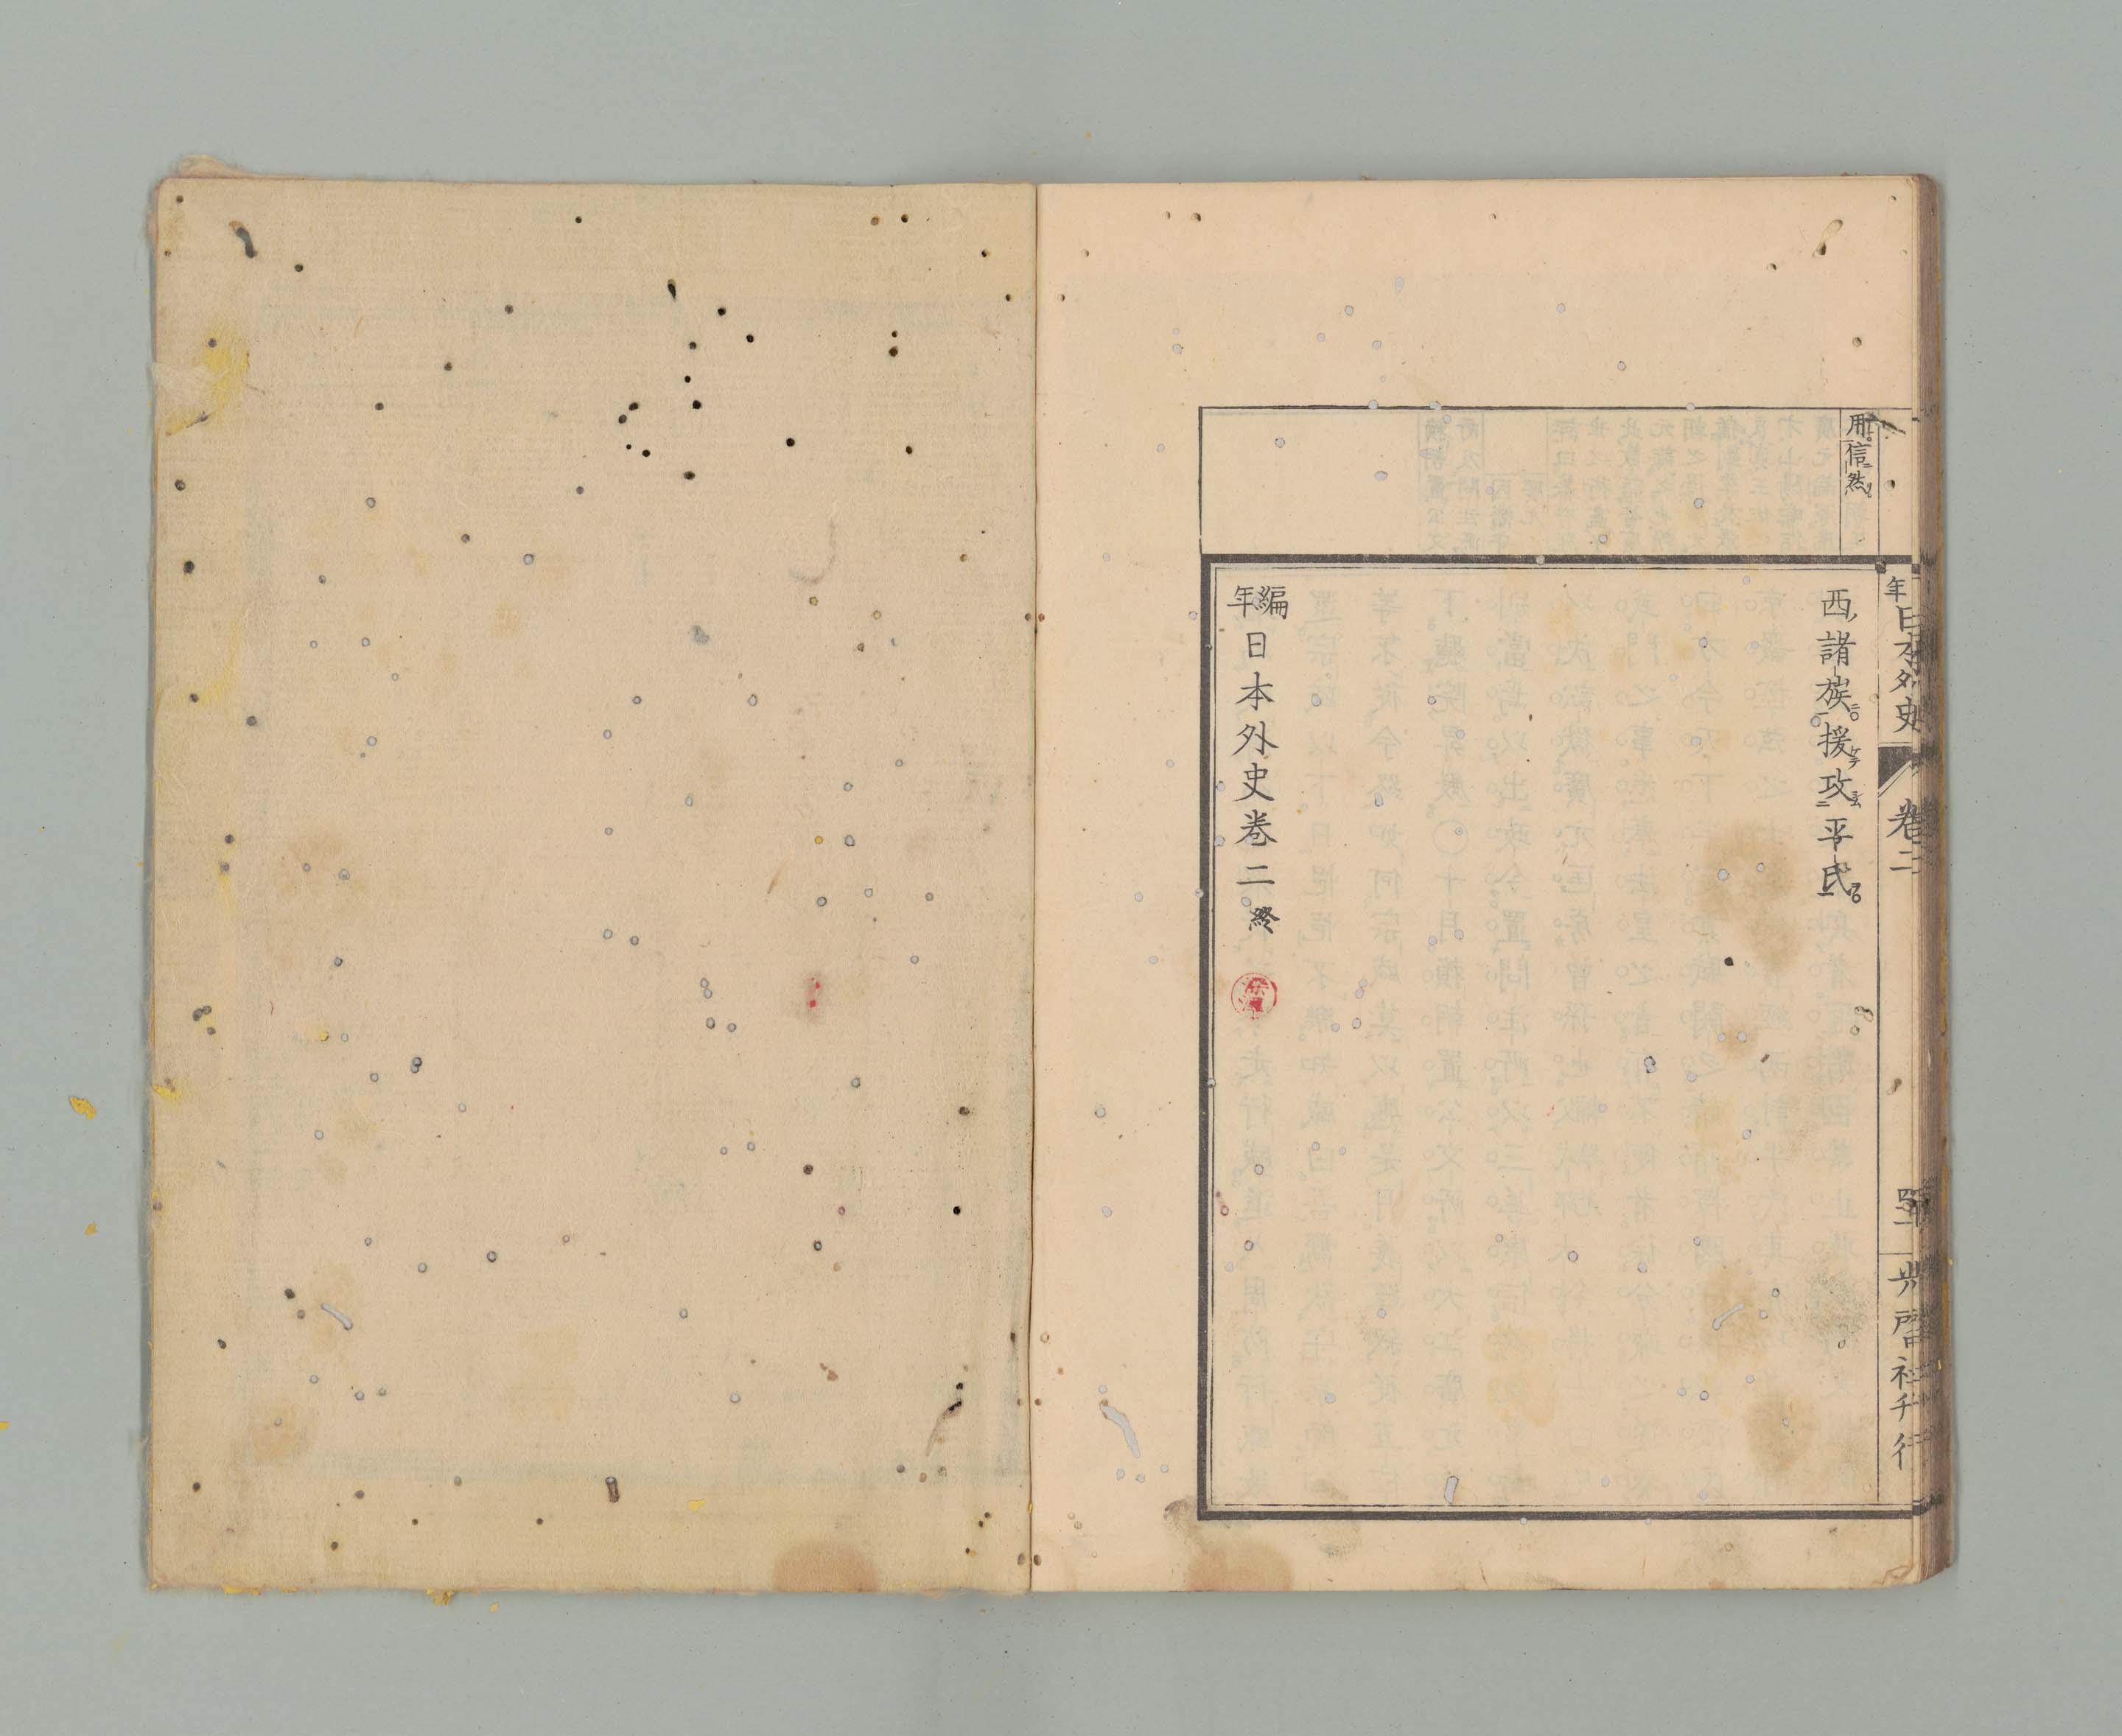 用信然
西諸族援攻平氏
編年日本外史巻二終
年日本外史
巻二
社刊行